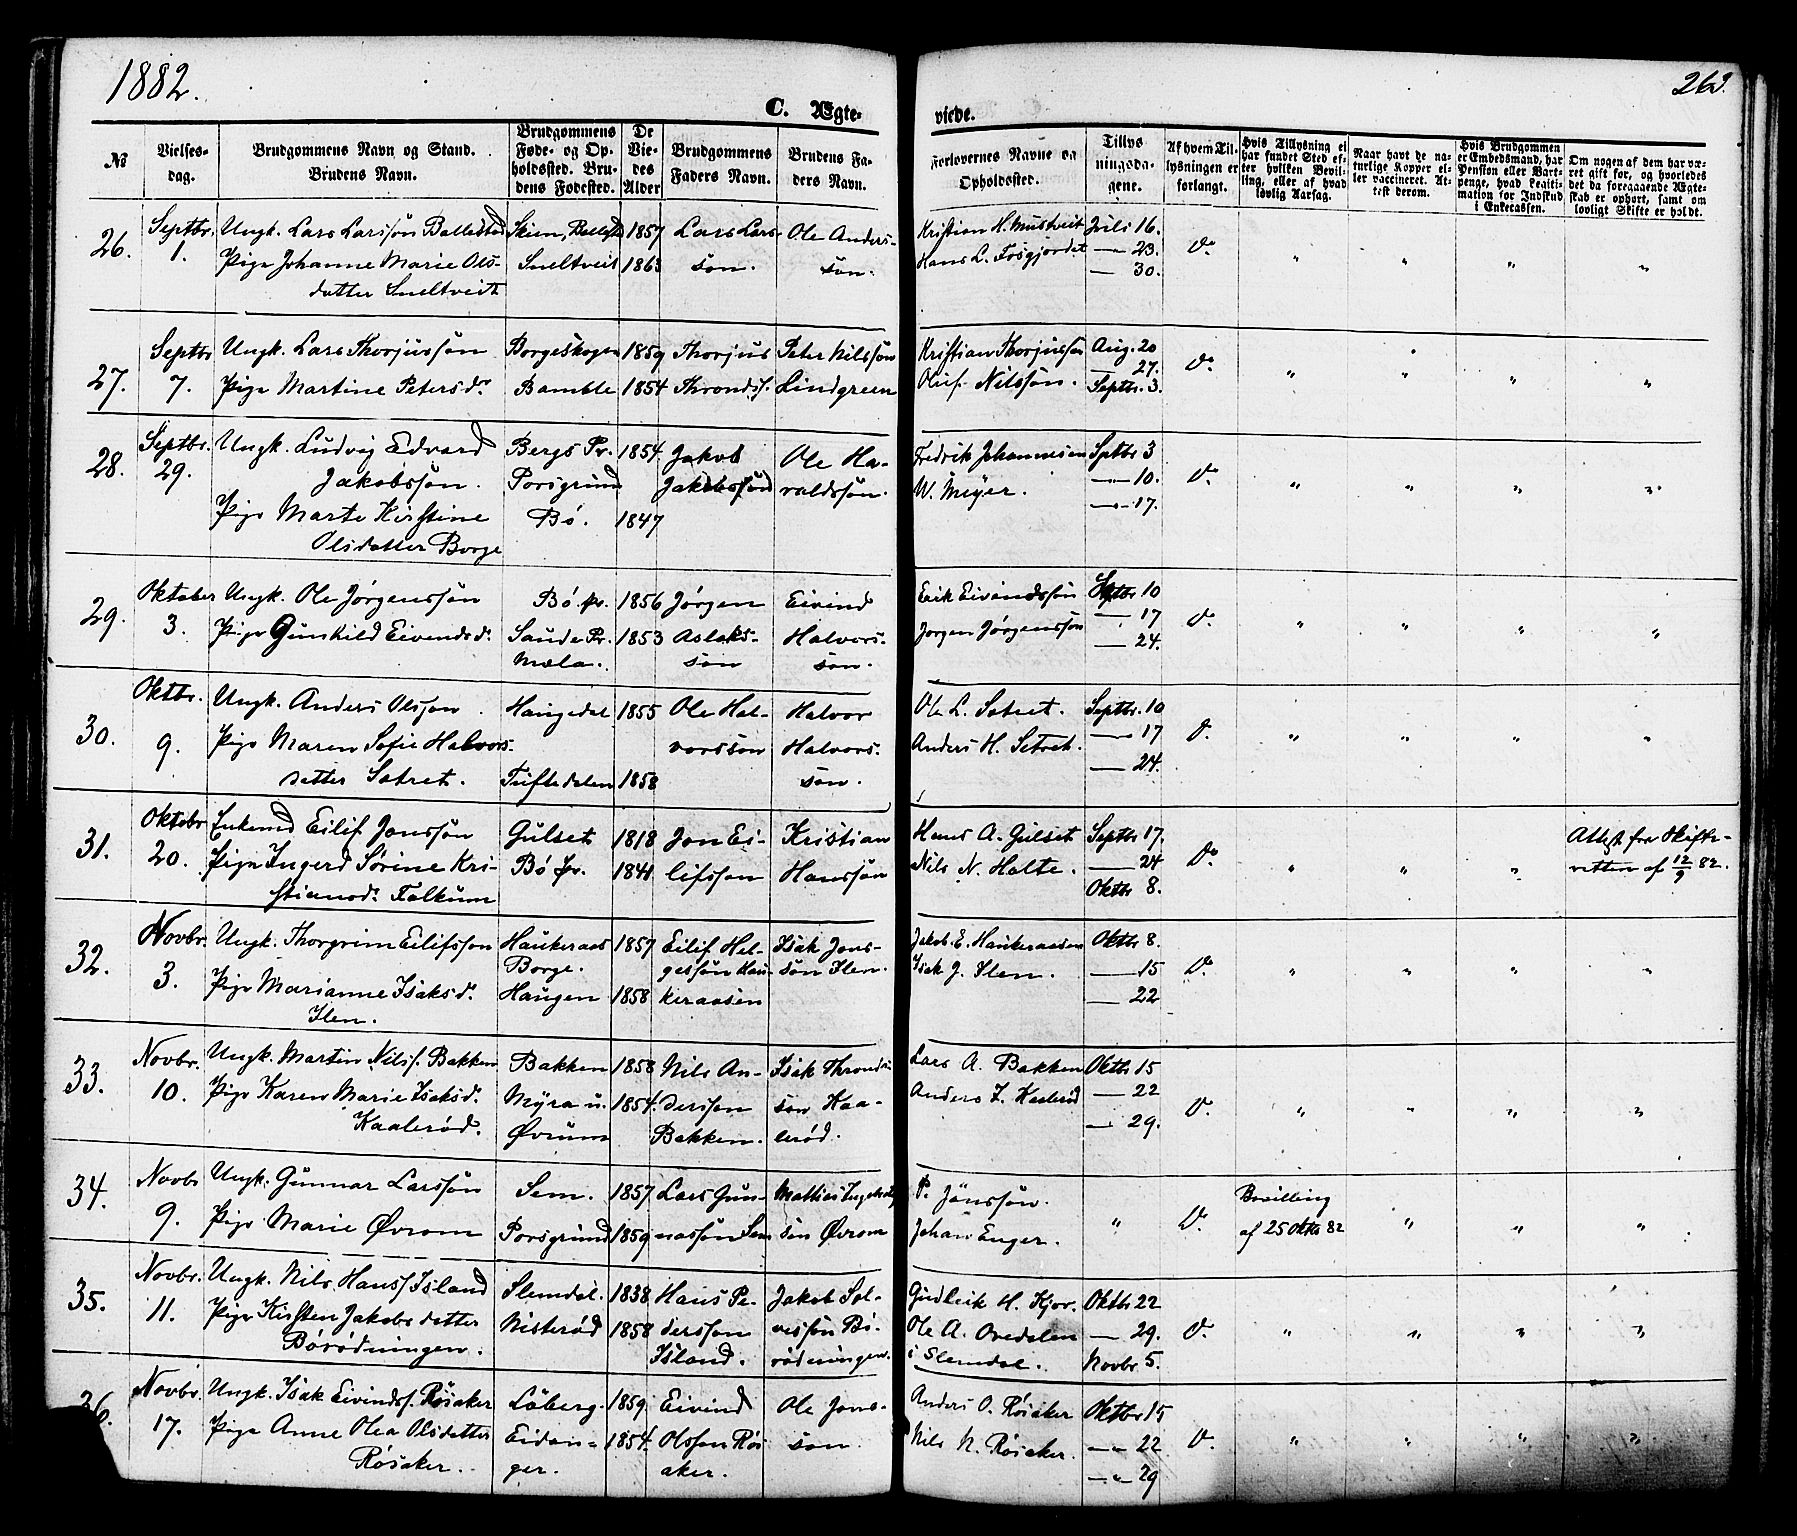 1882.
263.
C. Ægte-
viede.
№
Vielses-
dag.
Brudgommens Navn og Stand.
Brudens Navn.
Brudgommens
Føde- og Op-
holdssted. Bru-
dens Fødested.
De
Vie-
des
Alder
Brudgommens
Faders Navn.
Brudens Fa-
ders Navn.
Forlovernes Navne og
Opholdssted.
Tillys
ningsda-
gene.
Af hvem Til-
lysningen er
forlangt.
Hvis Tillysning ei
har fundet Sted ef-
ter hvilken Bevil-
ling, eller af hvad
lovlig Aarsag.
Naar havt de na-
turlige Kopper el-
ler vaccineret. At-
test derom.
Hvis Brudgommen
er Embedsmand, har
Pension eller Vart-
penge, hvad Legiti-
mation for Indskud
i Enkecassen.
Om nogen af dem har væ-
ret gift før, og hvorledes
det da foregaaende Ægte-
skab er ophørt, samt om
lovligt Skifte er holdt.
26.
Septbr.
1.
Ungk. Lars Larssøn Ballestad
Pige Johanne Marie Ols-
datter Sneltveit
Skien, Ballestd
Sneltveit
1857
1863
Lars Lars-
søn.
Ole Anders-
søn.
Kristian H. Mustveit
Hans L. Fosgjordet
Juli 16.
— 23.
— 30.
27.
Septbr
7.
Ungk. Lars Thorjussøn
Pige Martine Petersdr
Borgeskogen
Bamble
1859
1854
Thorjus
Throndsf.
Peter Nilssøn
Lindgreen
Kristian Thorjussøn
Oluf Nilssøn.
Aug. 20
— 27.
Septbr. 3.
28.
Septbr.
29.
Ungk. Ludvig Edvard
Jakobssøn.
Pige Marte Kirstine
Olsdatter Borge
Bergs Pr.
Porsgrund
Bø.
1854.
1847
Jakob
Jakobssøn
Ole Ha-
raldssøn.
Fredrik Johannesen
W. Meyer.
Septbr 3
—"— 10.
—"— 17.
29.
Oktober
3.
Ungk. Ole Jørgenssøn
Pige Gunhild Eivendsdr
Bø. pr.
Saude Pr.
Mæla.
1856
1853
Jørgen
Aslaks-
søn
Eivind
Halvors-
søn.
Erik Eivendssøn
Jørgen Jørgenssøn
Septbr 10
— 17
— 24.
30.
Oktbr.
9.
Ungk. Anders Olssøn
Pige Maren Sofie Halvors-
datter Sætret.
Haugedal
Tufledalen
1855
1858
Ole Hal-
vorssøn
Halvor
Halvors-
søn.
Ole L. Sætret.
Anders H. Sætret.
Septbr. 10
— 17
— 24.
31.
Oktobr
20.
Enkemd Eilif Jonssøn
Pige Ingerd Sørine Kri-
stiansdr Falkum
Gulset
Bø pr.
1818
1841
Jon Ei-
lifssøn
Kristian
Hanssøn
Hans A. Gulset
Nils N. Holte.
Septbr 17.
— 24
Oktbr 8.
Attest fra Skifte-
retten af 12/9 82.
32.
Novbr.
3.
Ungk. Thorgrim Eilifssøn
Pige Marianne Isaksdr
Ilen.
Haukeraas
Borge.
Haugen
1857
1858
Eilif Hel-
gessøn Hau-
keraasen
Isak Jons-
søn Ilen.
Jakob E. Haukeraasen
Isak J. Ilen.
Oktbr 8.
— 15
— 22
33.
Novbr.
10.
Ungk. Martin Nilsf. Bakken
Pige Karen Marie Isaksdr
Kaalerød.
Bakken
Myra u.
Øvrum
1858
1854.
Nils An-
derssøn
Bakken.
Isak Thronds-
søn Kaa-
lerød.
Lars A. Bakken
Anders I. Kaalerød
Oktbr 15
— 22
— 29.
34.
Novbr
9.
Ungk. Gunnar Larssøn
Pige Marie Øvrom
Sem.
Porsgrund
1857.
1859
Lars Gun-
narssøn Sem
søn Øvrom
P. Jønssøn.
Johan Enger.
Bevilling
af 25 Oktbr 82
35.
Novbr.
11.
Ungk. Nils Hansf. Island
Pige Kirsten Jakobsdatter
Børødningen.
Slemdal.
Nisterød
1838
1858
Hans Pe-
derssøn
Island.
Jakob Sol-
vessøn Bø-
rødningen.
Gudleik H. Kjor.
Ole A. Ovedalen
i Slemdal.
Oktbr 22
— 29.
Novbr 5.
36.
Novbr.
17.
Ungk. Isak Eivindsf. Røsaker
Pige Anne Olea Olsdatter
Røsaker.
Løberg-
Eidan-
ger.
1859.
1854.
Eivind
Olssøn Røs-
aker.
Ole Jons-
søn.
Anders O. Røsaker
Nils N. Røsaker.
Oktbr 15
—"— 22
—"— 29